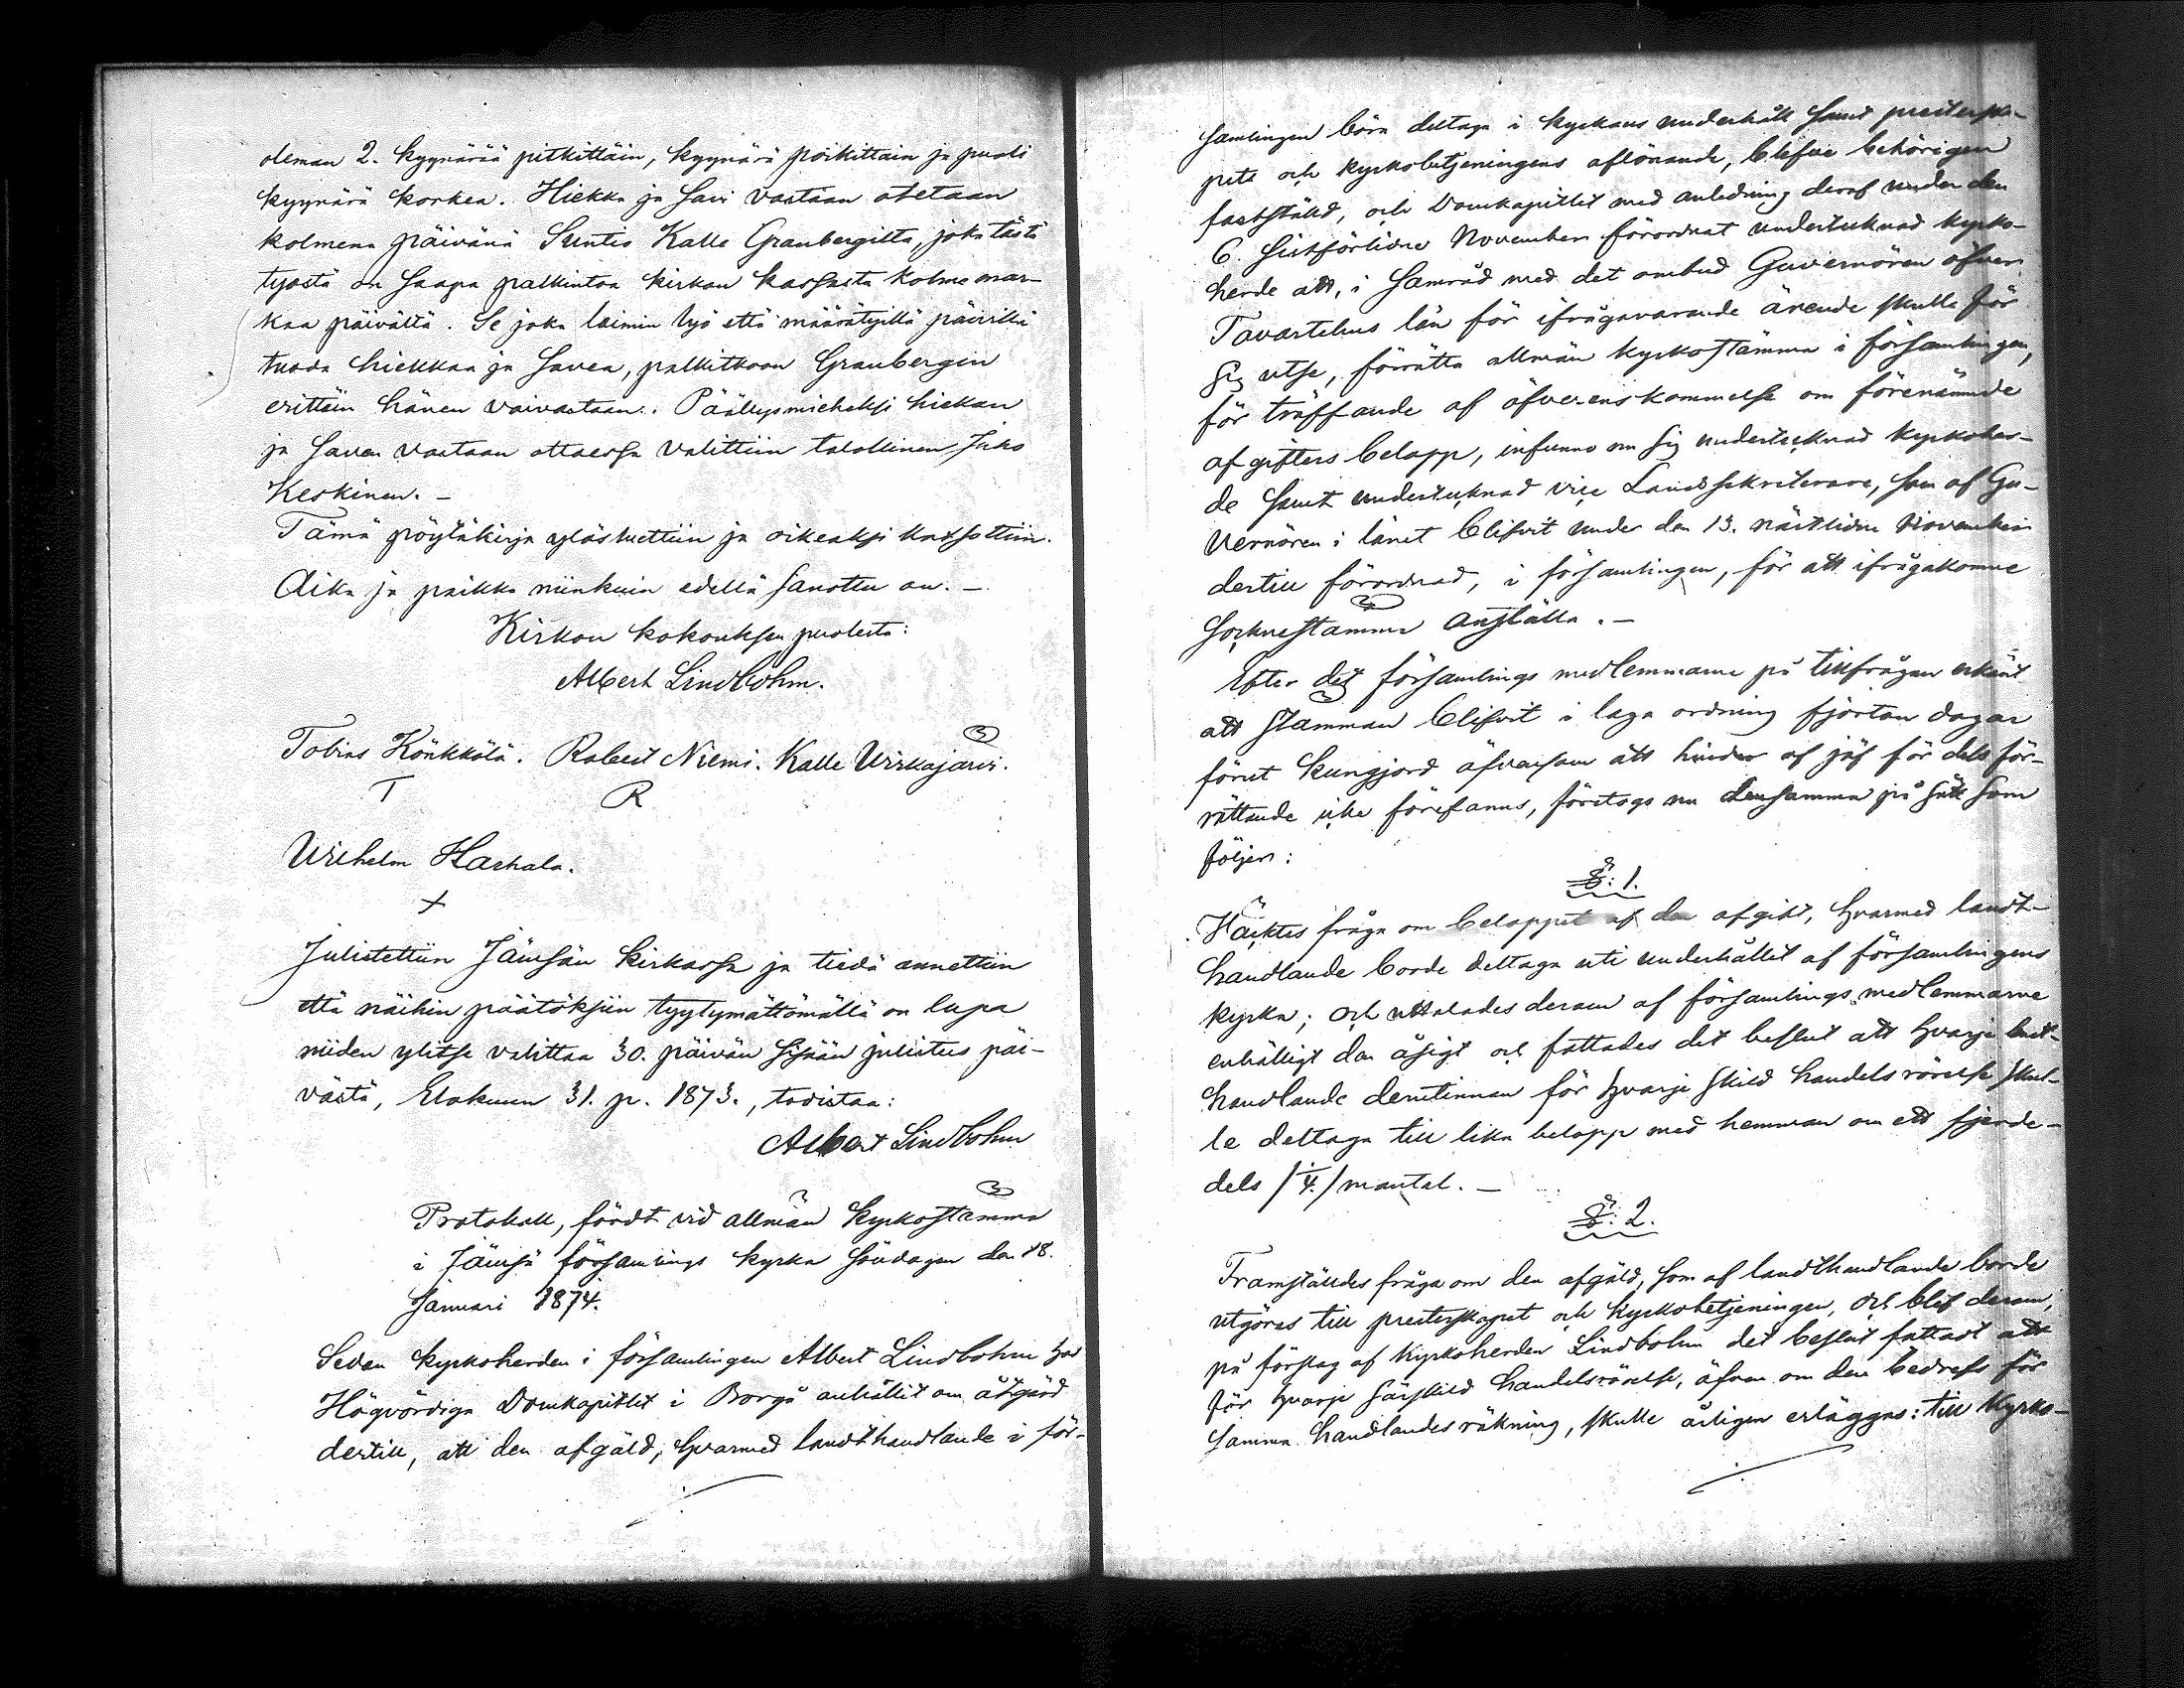 oleman 2. kyynärää pitkittäin, kyynärä poikittain ja puoli
kyynärä korkea. Hiekka ja Savi vastaan otetaan
kolmena päivänä Suntio Kalle Granbergilta, joka tästä
työstä on Saapa palkintoa kirkon kassasta kolme mar-
kaa päivältä. Se joka laimin lyö että määrätyillä päivillä
tuoda hiekkaa ja Savea, palkitkoon Granbergin
erittäin hänen vaivastaan. Päällysmieheksi hiekan
ja Saven vastaan ottaessa valittiin talollinen Juho
Keskinen. -
Tämä pöytäkirja ylösluettiin ja oikeaksi katsottiin.
Aika ja paikka niinkuin edellä Sanottu on. -
Kirkon kokouksen puolesta:
Albert Lindbohm.
Tobias Könkkölä. Robert Niemi. Kalle Wirkajärvi.
T R
Wilhelm Harhala.
+
Julistettiin Jämsän kirkossa ja tiedä annettiin
että näihin päätöksiin tyytymättömällä on lupa
niiden ylitse valittaa 30. päivän Sisään julistus päi-
västä, Elokuun 31. p. 1873., todistaa:
Albert Lindbohm
Protokoll, fördt vid allmän kyrkostämma
i Jämsä församlings kyrka Söndagen den 18.
Januari 1874.
Sedan kyrkoherden i församlingen Albert Lindbohm hos
Högvördiga Domkapitlet i Borgå anhållit om åtgärd
dertill, att den afgäld, hvarmed landthandlande i för-
samlingen böra deltaga i kyrkans underhåll Samt presterska-
pets och kyrkobetjeningens aflönande, blefve behörigen
fastställd, och Domkapitlet med anledning deraf under den
6. Sistförlidne November förordnat undertecknad kyrko-
herde att, i Samråd med det ombud Guvernören öfver
Tavastehus län för ifrågavarande ärende skulle för
Sig utse, förrätta allmän kyrkostämma i församlingen,
för träffande af öfverenskommelse om förenämnde
afgifters belopp, infunno nu Sig undertecknad kyrkoher-
de Samt undertecknad vice Landssekreterare, Som af Gu-
vernören i länet blifvit under den 13. nästlidne November
dertill förordnad, i församlingen, för att ifrågakomne
Sockenstämma anställa. -
Efter det församlings medlemmarne på tillfrågan erkänt
att Stämman blifvit i laga ordning fjorton dagar
förut kungjord äfvensom att hinder af jäf för dess för-
rättande icke förefanns, företogs nu densamma på Sätt Som
följer:
§: 1.
Väcktes fråga om beloppet af den afgift, hvarmed landt-
handlande borde deltaga uti underhållet af församlingens
kyrka; och uttalades derom af församlings medlemmarne
enhälligt den åsigt och fattades det beslut att hvarje landt-
handlande derstinnan för hvarje Skild handelsrörelse skul-
le deltaga till lika belopp med hemman om ett fjerde-
dels /1/4./ mantal. -
§: 2.
Framställdes fråga om den afgäld, Som af landthandlande borde
utgöras till presterskapet och kyrkobetjeningen, och blef derom,
på förslag af kyrkoherden Lindbohm det beslut fattadt att
för hvarje Särskild handelsrörelse, äfven om den bedrefs för
Samma handlandes räkning, skulle årligen erläggas: till kyrko-